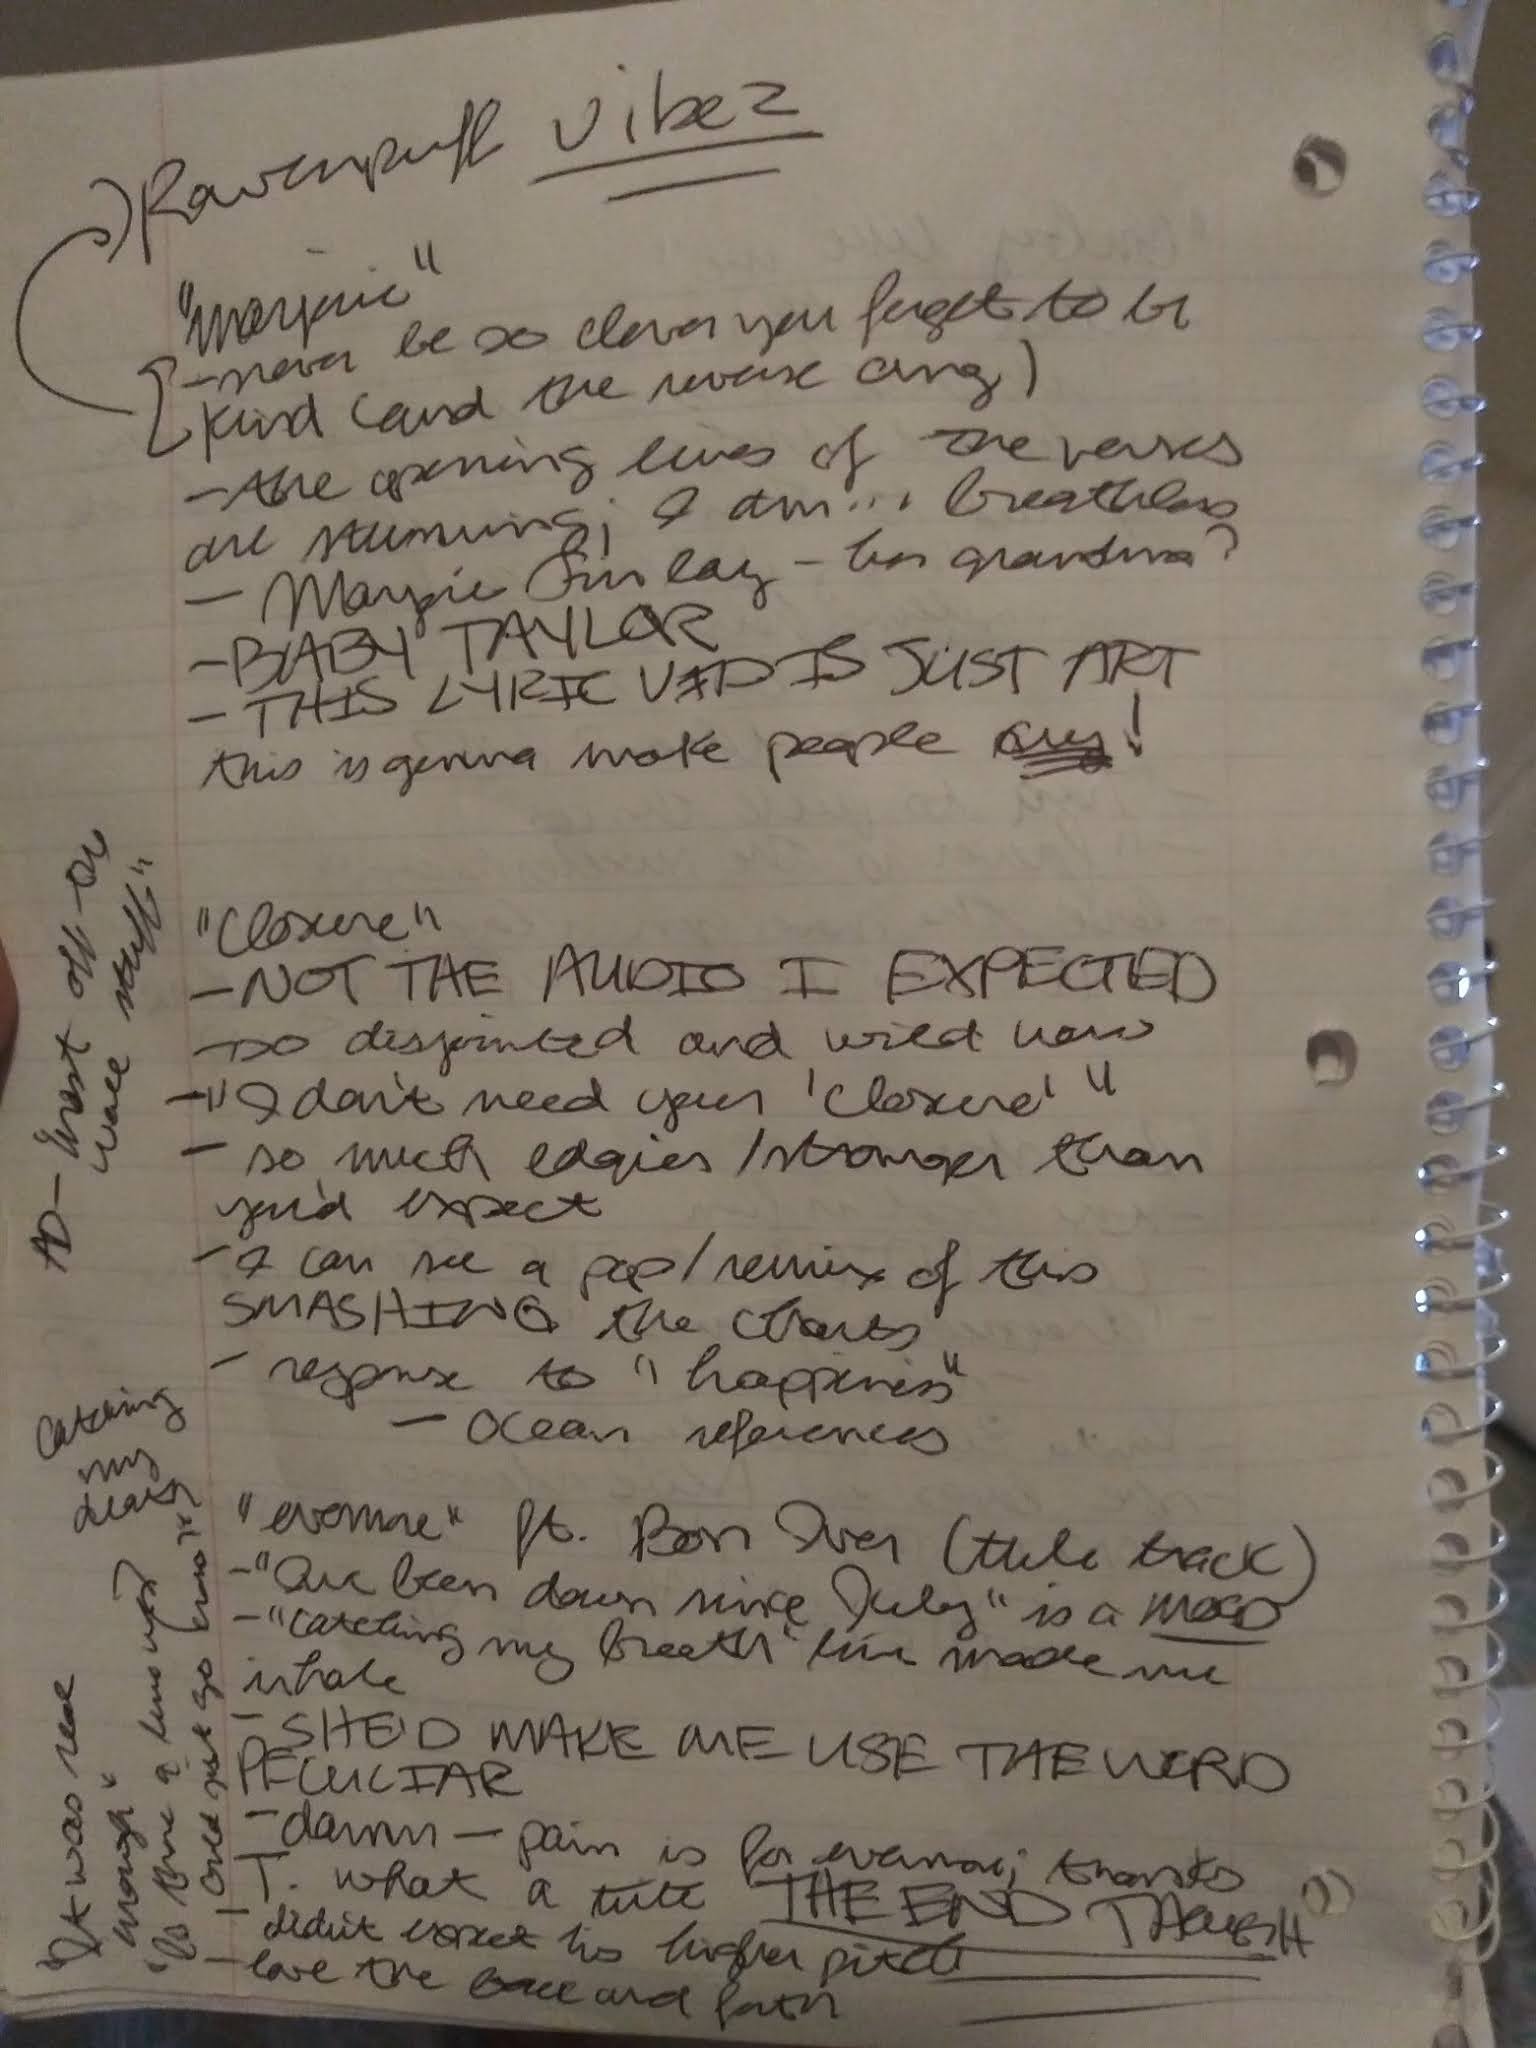 Ravenpuff vibez
"marjorie"
- never be so clever you forget to be
kind (and the reverse omg)
- the opening lines of the verses
are stunning; I am... breathless
- Marjorie Finlay - her grandma?
- BABY TAYLOR
- THIS LYRIC VID IS JUST ART
this is gonna make people cry!
"closure"
- NOT THE AUDIO I EXPECTED
- so disjointed and wild wow
- "I don't need your 'closure'"
- so much edgier/stronger than
you'd expect
- I can see a pop/remix of this
SMASHING the charts
- response to "happiness"
- ocean references
"evermore" ft. Bon Iver (title track)
- "I've been down since July" is a MOOD
- "catching my breath" line made me
inhale
- SHE'D MAKE ME USE THE WORD
PECULIAR
- damn - pain is for evermore; thanks
T. what a title THE END THOUGH
- didn't expect his higher pitch
- love the back and forth
AD - most off-the
wall stuff"
catching
my
death
"It was real
enough"
"Is there a line up?
Could just go